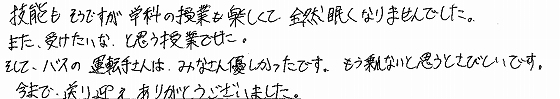 技能もそうですが学科の授業も楽しくて全然眠くなりませんでした。
また、受けたいな、と思う授業でした。
そして、バスの運転手さんは、みなさん優しかったです。もう乗れないと思うとさびしいです。
今まで、送り迎えありがとうございました。